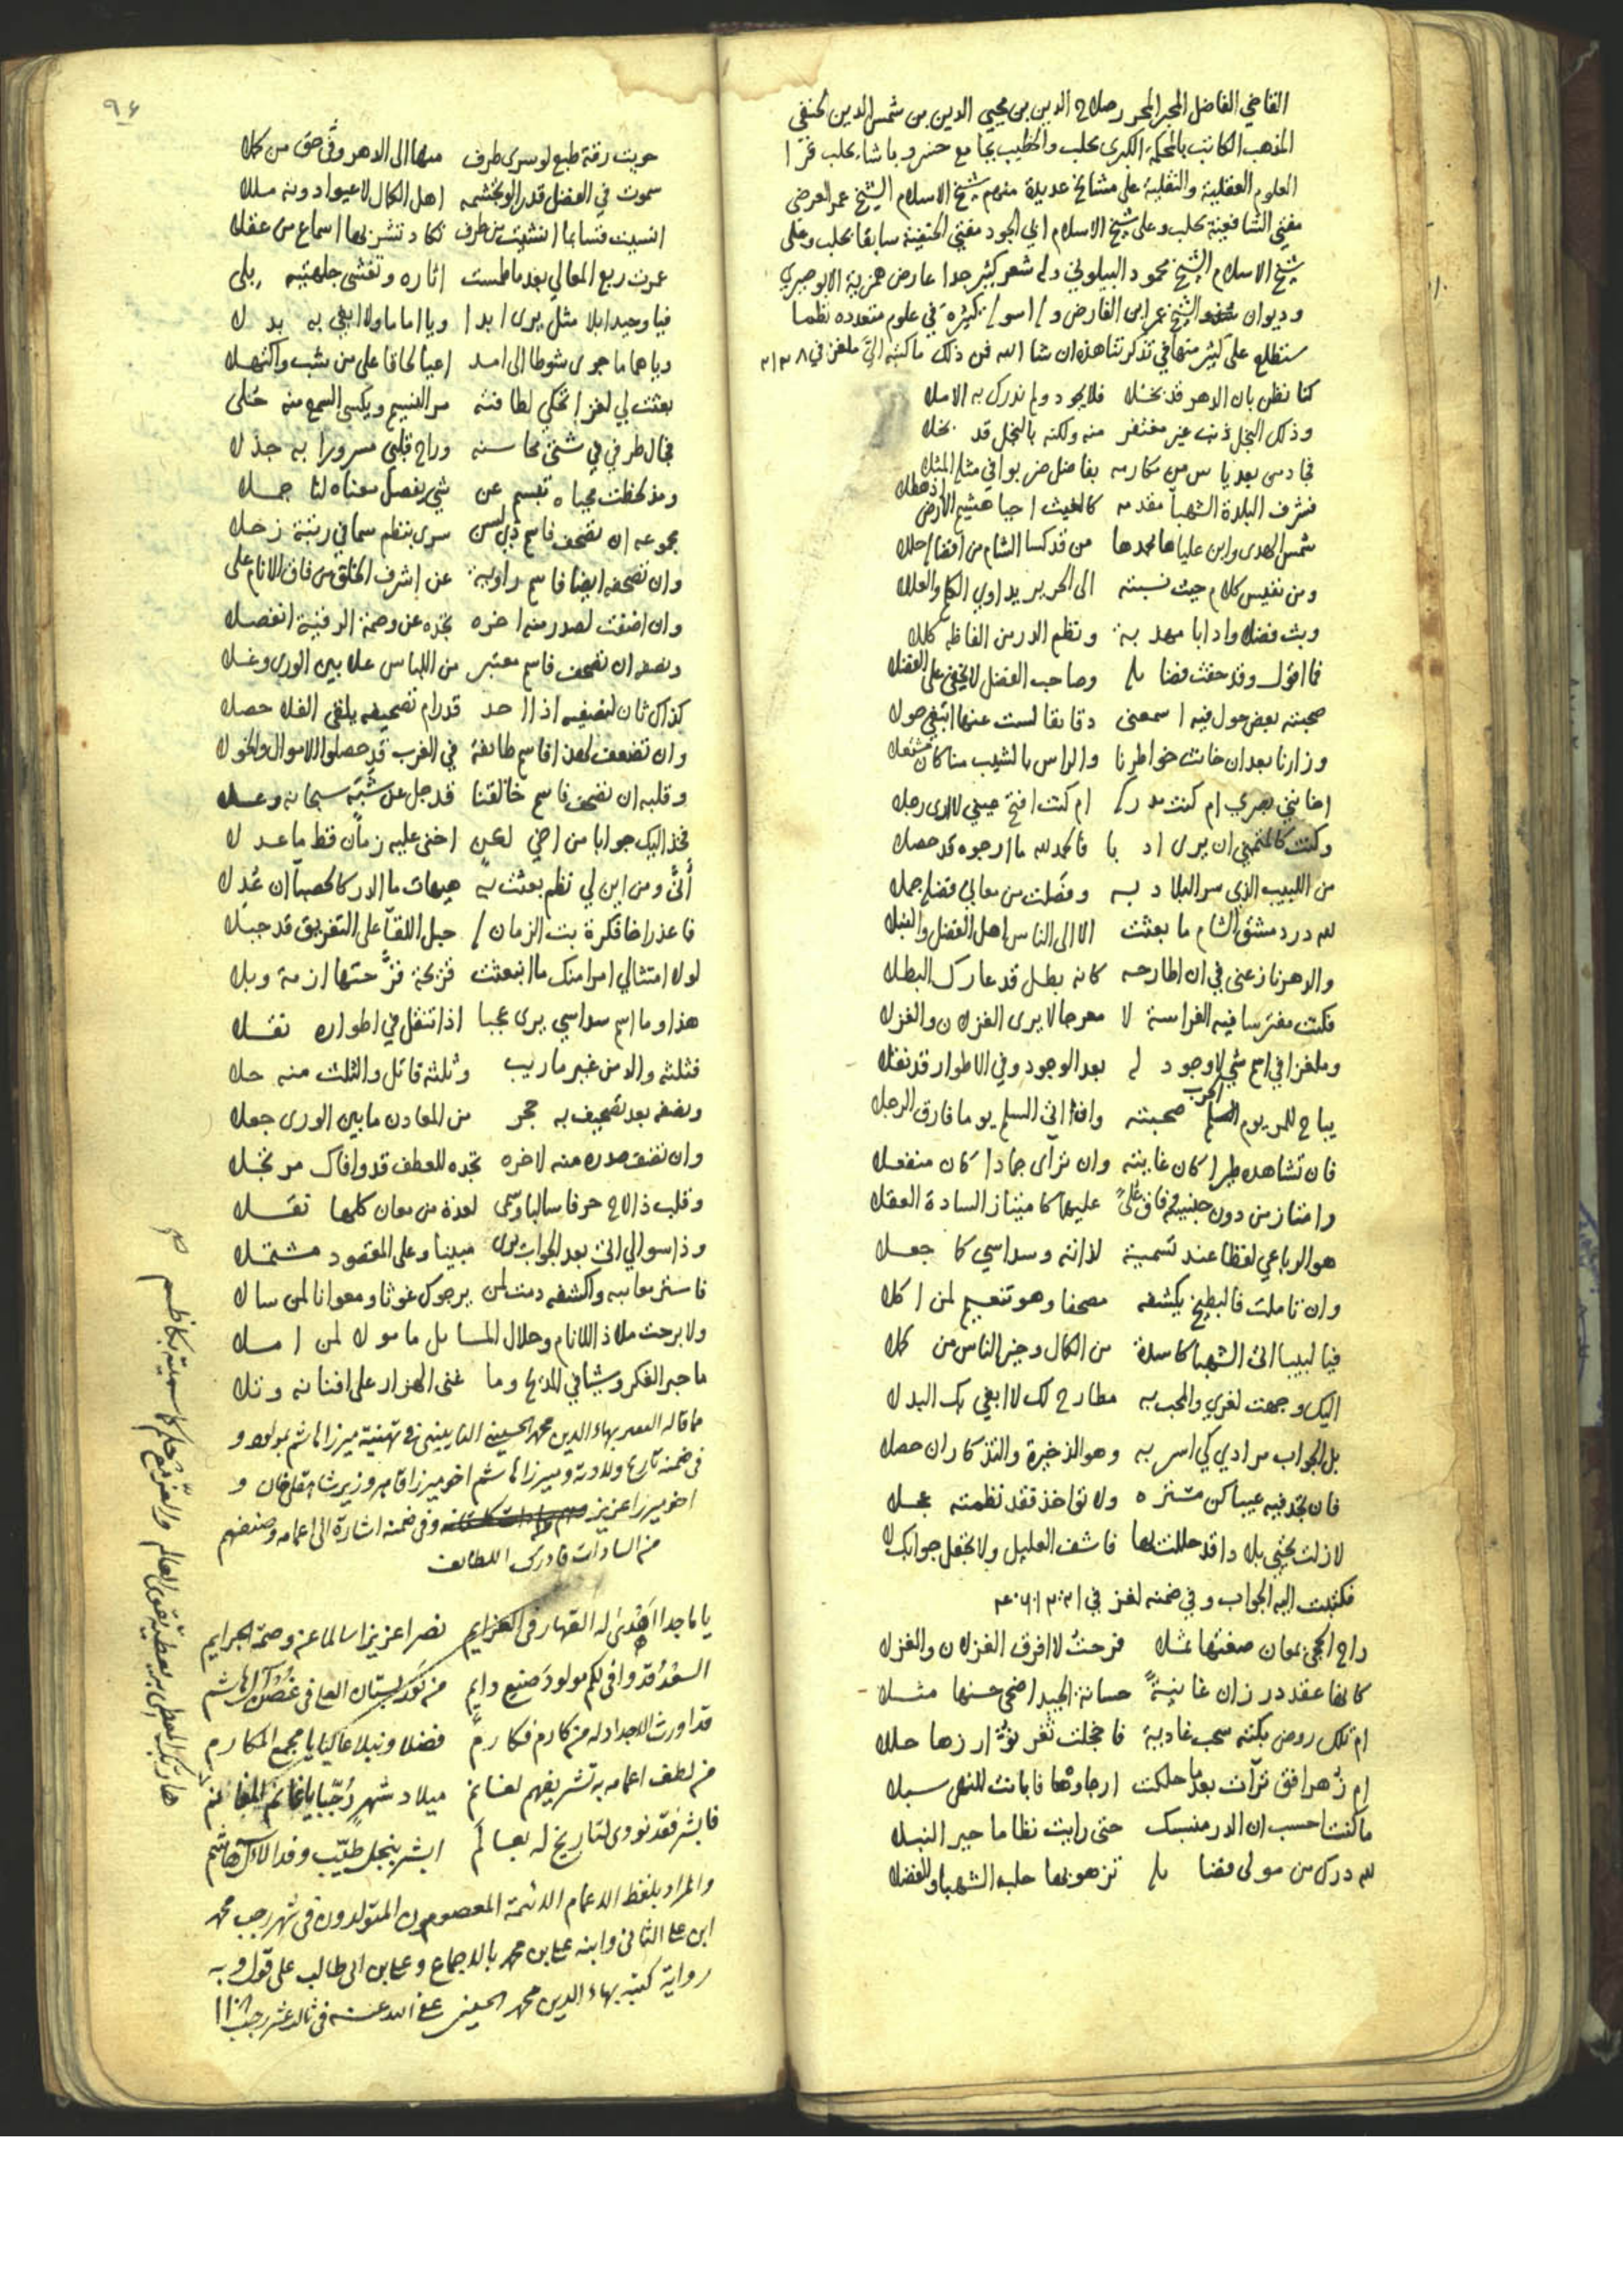 القاضي الفاضل المحبر المحرر صلاح الدين بن محيي الدين بن شمس الدين الحنفي
المذهب الكاتب بالمحكمة الكبرى بحلب والخطيب بجامع خسرو باشا بحلب قرا
العلوم العقلية والنقلية على مشائخ عديدة منهم شيخ الاسلام الشيخ عمر العرضي
مفتي الشافعية بحلب وعلى شيخ الاسلام ابي الجود مفتي الحنفية سابقا بحلب وعلى
شيخ الاسلام الشيخ محمود البيلوني وله شعر كثير جدا عارض همزية الابوصيري
وديوان الشيخ عمر ابن الفارض وله اسولة كثيرة في علوم متعدده نظما
ستطلع على كثير منها في تذكرتنا هذه ان شا الله فمن ذلك ما كتبه الي ملغز في
كنا نظن بان الدهر قد بخلا فلا يجود ولم ندرك به الاملا
وذلك البخل ذنب غير مغتفر منه ولكنه بالبخل قد بخلا
فجاد من بعد ياس من مكارمه بفاضل ضربوا في مثله المثلا
فشرف البلدة الشهبا مقدمه كالغيث احيا هشيم الارض اذ هطلا
شمس الهدى وابن علياها محمدها من قد كسا الشام من افضاله حللا
ومن نفيس كلام حيث نسبته الى الحرير يداوي الكلم والعللا
وبث فضلا وادابا مهذبة ونظم الدر من الفاظه كللا
فما اقول وقد حفت فضائله وصاحب الفضل لا يخفى على الفضلا
صحبته بعض حول فيه اسمعني دقائقا لست عنها ابتغي حولا
وزارنا بعد ان خانت خواطرنا والراس بالشيب منا كان مشتعلا
اخانني بصري ام كنت مدركه ام كنت افتح عيني لا ارى رجلا
وكنت كالمتمني ان يرى ادبا فالحمد لله ما ارجوه قد حصلا
من اللبيب الذي سر البلاد به وفصلت من معالي فضله جملا
لله در دمشق الشام ما بعثت الا الى الناس اهل الفضل والنبلا
والدهر نازعني في ان اطارحه كانه بطل قد عارك البطلا
فكنت مفترسا فيه الفراسة لا معرجا لا يرى الغزلان والغزلا
وملغزا في اسم شي لا وجود له بعد الوجود وفي الاطوار قد نقلا
يباح للمر يوم الحرب صحبته وان اتى السلم يوما فارق الرجلا
فان تشاهده طيرا كان غايته وان ترآى جمادا كان منفعلا
وامتاز من دون جنسيه فاق على عليهما كامتياز السادة العقلا
هو الرباعي لفظا عند تسمية لذاته وسداسي كما جعلا
وان تاملت فالبطيخ يكشفه مصحفا وهو تنعيم لمن اكلا
فيا لبيبا اتى الشهبا كاملة من الكمال وخير الناس من كملا
اليك وجهت لغزي والمحب به مطارح لك لا ابغي بك البدلا
بل الجواب مرادي كي اسر به وهو الذخيرة والتذكار ان حصلا
فان تجد فيه عيبا كن مستره ولا تؤاخذ فقد نظمته عجلا
لازلت تحيي بلادا قد حللت بها فاشف العليل ولا تجعل جوابك لا
فكتبت اليه الجواب وفي ضمنه لغز في
راح الحجى بمعان صغتها ثملا فرحت لا افرق الغزلان والغزلا
كانها عقد در زان غانية حسانة الجيد اضحى حسنها مثلا
ام تلك روض بكته سحب غادية فاخجلت ثغر نور ازرها حللا
ام زهر افق ترآت بعد ما حلكت ارجاؤها فابانت للنهى سبلا
ما كنت احسب ان الدر منسبك حتى رايت نظاما حير النبلا
لله درك من مولى فضائله تزهو بها حلب الشهبا والفضلا
٩٤
حويت رقة طبع لو سرى طرف منها الى الدهر وفى حق من كملا
سموت في الفضل قدرا لو تجشمه اهل الكمال لاعيوا دونه مللا
عمرت ربع المعالي بعد ما طمست اثاره وتفشى جلهتيه بلى
فيا وحيدا بلا مثل يرى ابدا ويا اماما ولا ابغي به بدلا
وياهماما جرى شوطا الى امد اعيا لحاقا على من شب واكتهلا
بعثت لي لغزا تحكي لطافته مر النسيم ويكسى السمع منه حلى
فجال طرفي في شتى محاسنه وراح قلبي مسرورا به جذلا
ومذ لحظت محياه تبسم عن شي يفصل معناه لنا جملا
مجموعه ان تصحف فاسم ذي لسن سرى بنظم سما في رتبة زحلا
وان تصحفه ايضا فاسم راوية عن اشرف الخلق من فاق الانام على
وان اضفت لصدر منه اخره تجده عن وصمة الرقية انفصلا
ونصفه ان تصحف فاسم معتبر من اللباس علا بين الورى وغلا
كذاك ثان لنصفيه اذا احد قد رام تصحيفه يلقى الفلا حصلا
وان تضعف لهذا فاسم طائفة في الغرب قد حصلوا الاموال والخولا
وقلبه ان تصحف فاسم خالقنا قد جل عن شبه سبحانه وعلا
فخذ اليك جوابا من اخي لعن اخنى عليه زمان قط ما عدلا
أنى ومن اين لي نظم بعثت به هيهات ما الدر كالحصبا ان عدلا
فاعذر اخا فكرة بت الزمان لها حبل اللقا على التفريق قد جبلا
لولا امتثالي امرا منك ما انبعثت قريحة قرحتها ازمة وبلا
هذا وما اسم سداسي يرى عجبا اذا تنقل في اطواره نقلا
فثلثه والد من غير ما ريب وثلثه قاتل والثلث منه حلا
ونصفه بعد تصحيف به حجر من المعادن ما بين الورى جعلا
وان تضف صدره منه لاخره تجده للعطف قد وافاك مرتجلا
وقلب ذا لاح حرفا سالبا وسمى لعدة من معان كلها نقلا
وذا سوالي اتى بعد الجواب يرى مبينا وعلى المقصود مشتملا
فاستر معايبه واكشفه دمت لمن يرجوك غوثا ومعوانا لمن سالا
ولا برحت ملاذا للانام وحلال المسايل ما مولا لمن املا
ما حبر الفكر وشيا في المديح وما غنى الهزار على افنانه وتلا
مما قاله الفقير بهاء الدين محمد الحسيني النايني في تهنية ميرزا هاشم بمولود و
في ضمنه تاريخ ولادته وميرزا هاشم اخو ميرزا قاسم وزير شاهقلي خان و
اخو ميرزا عزيز وفي ضمنه اشارة الى اعمامه وضعفهم
من السادات فادرك اللطائف
يا ماجدا اهدى له القهار في العزايم نصرا عزيزا سالما عن وصمة الجرايم
السعد قد وافى لكم مولود صنيع دايم من نور بستان العلى في غصن آل هاشم
قد اورث الاجداد له من كادم فكارم فضلا ونبلا عاكيا يا مجمع المكارم
من لطف اعمامه به تشريفهم لغانم ميلاد شهر رجبا يا غانم المغانم
فابشر فقد نودي لتاريخ له بعالم ابشر بنجل طيب وفد الال هاشم
والمراد بلفظ الاعمام الائمة المعصومون المتولدون في شهر رجب محمد
ابن علي الثاني وابنه علي بن محمد بالاجماع وعلي بن ابي طالب على قول وبه
رواية كتبه بهاء الدين محمد الحسيني عفى الله عنه في ثالث عشر رجب